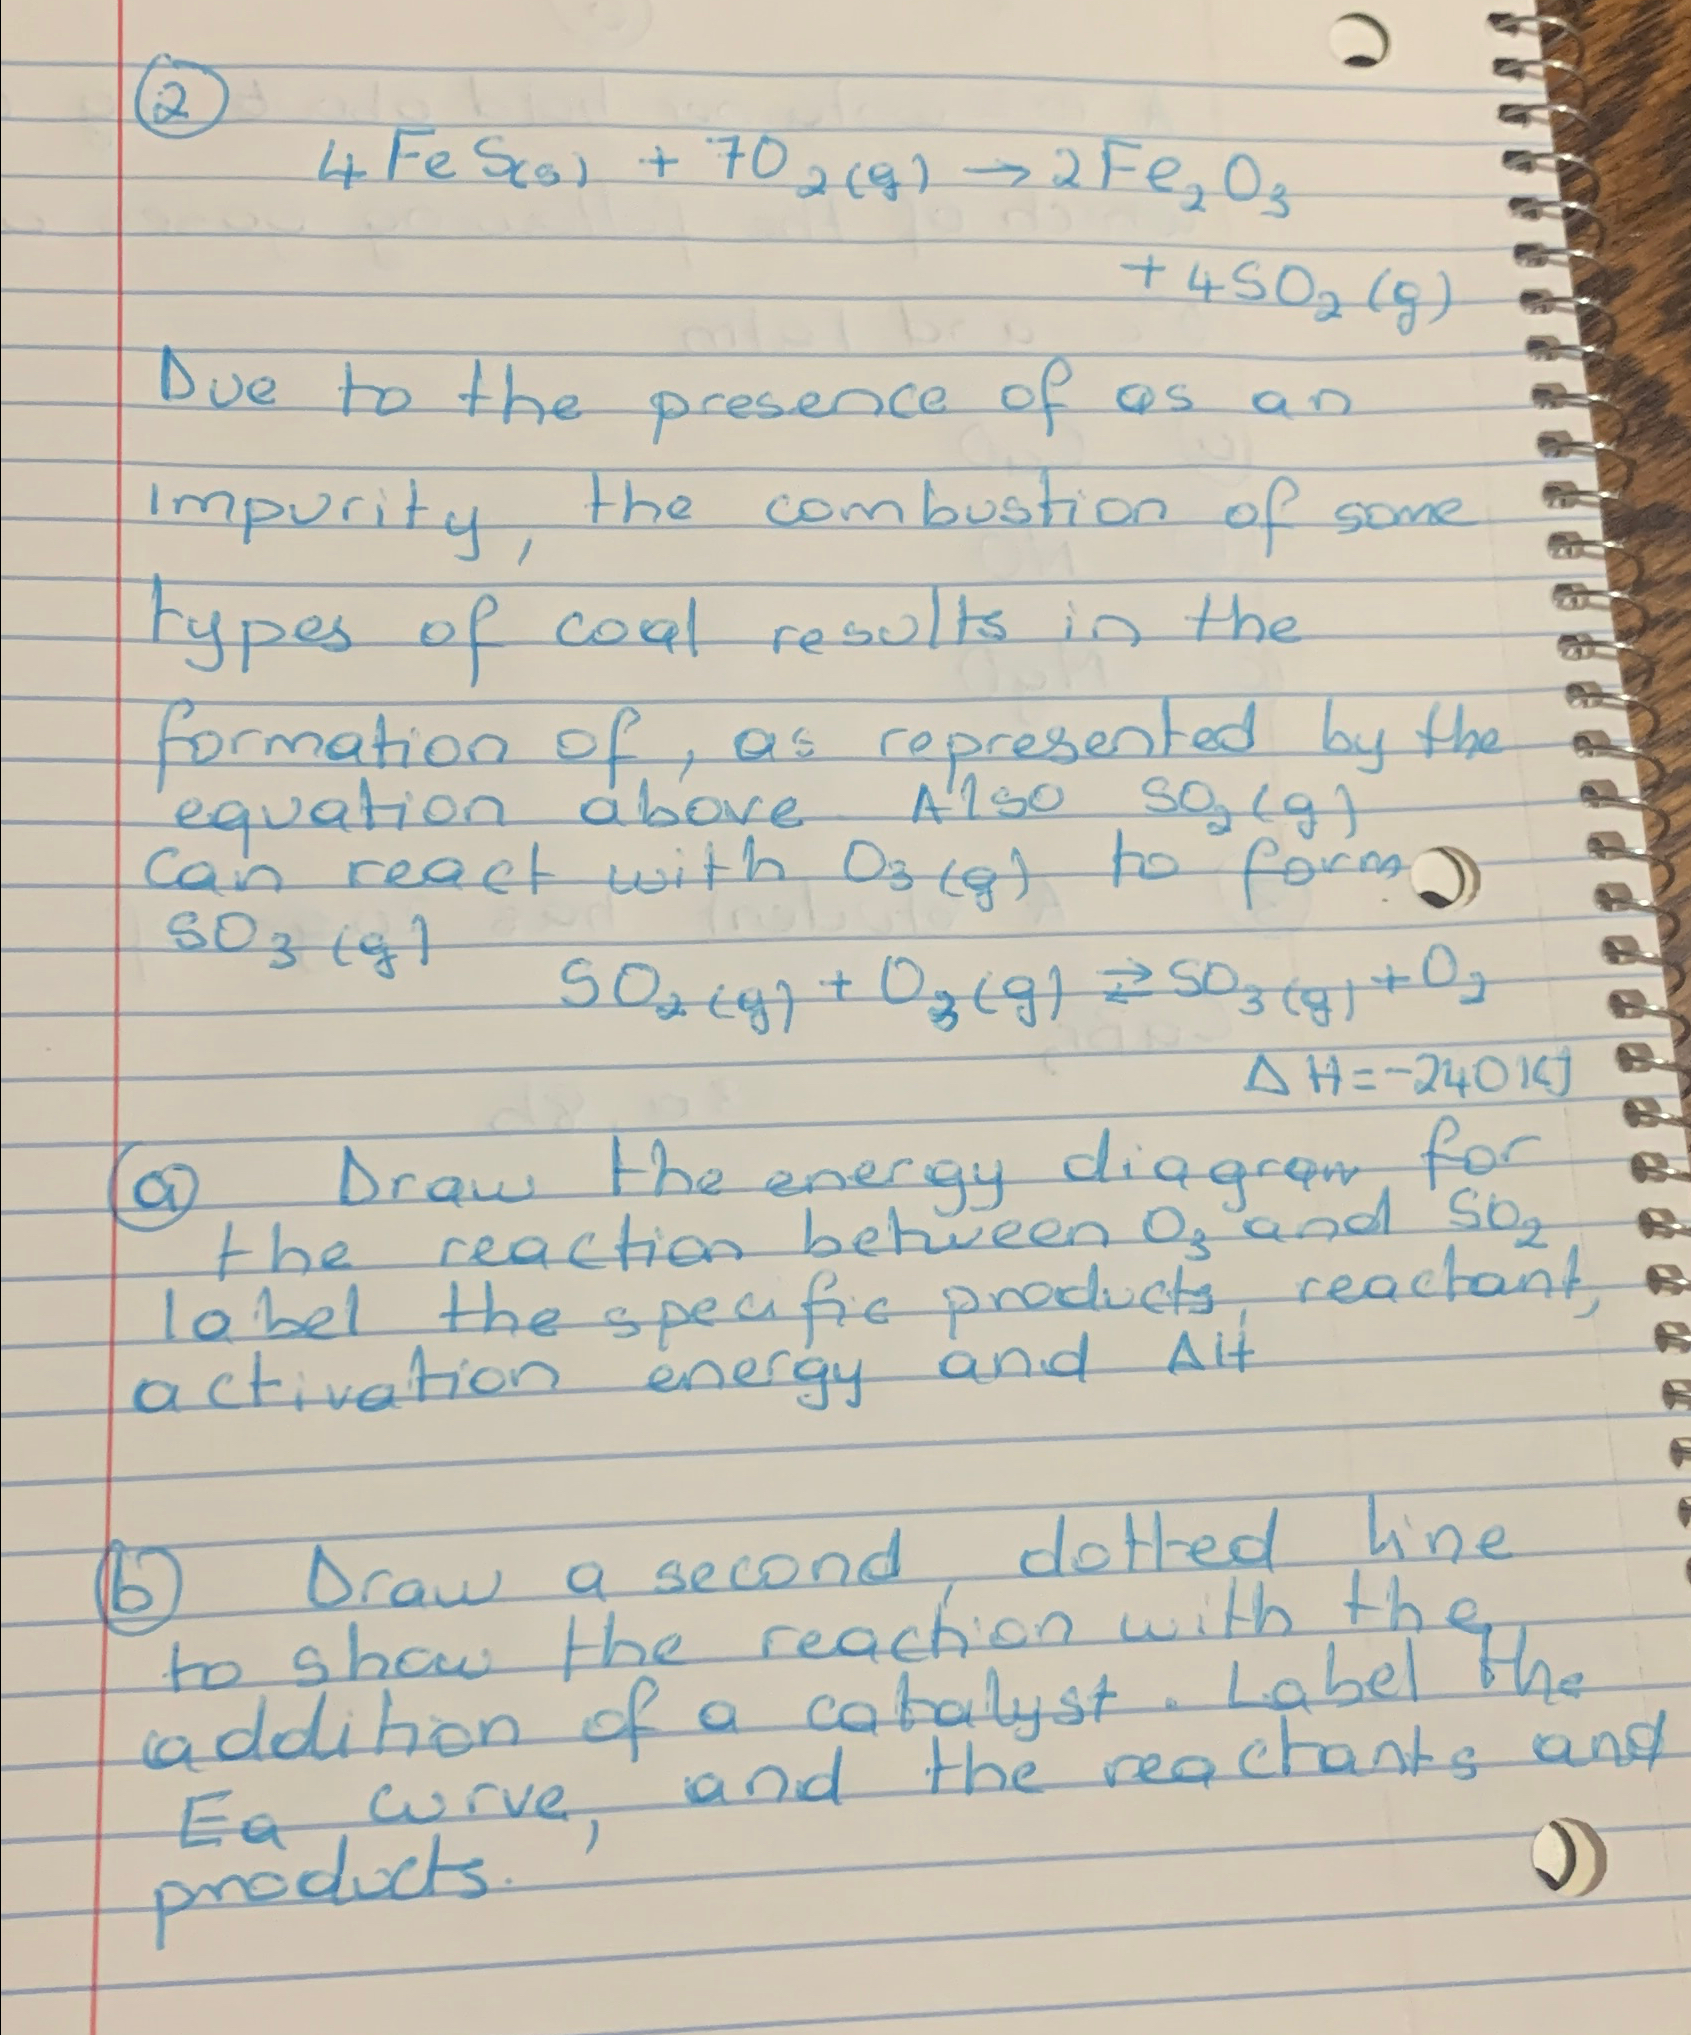 2
4FeS(s) + 7O₂(g) → 2Fe₂O₃
+ 4SO₂(g)
Due to the presence of as an
impurity, the combustion of some
types of coal results in the
formation of, as represented by the
equation above Also SO₂(g)
can react with O₃(g) to form
SO₃(g)
SO₂(g) + O₃(g) ⇄ SO₃(g) + O₂
ΔH = -240KJ
a Draw the energy diagram for
the reaction between O₃ and SO₂
label the specific products, reactant,
activation energy and ΔH
b Draw a second, dotted line
to show the reaction with the
addition of a catalyst. Label the
Ea curve, and the reactants and
products.